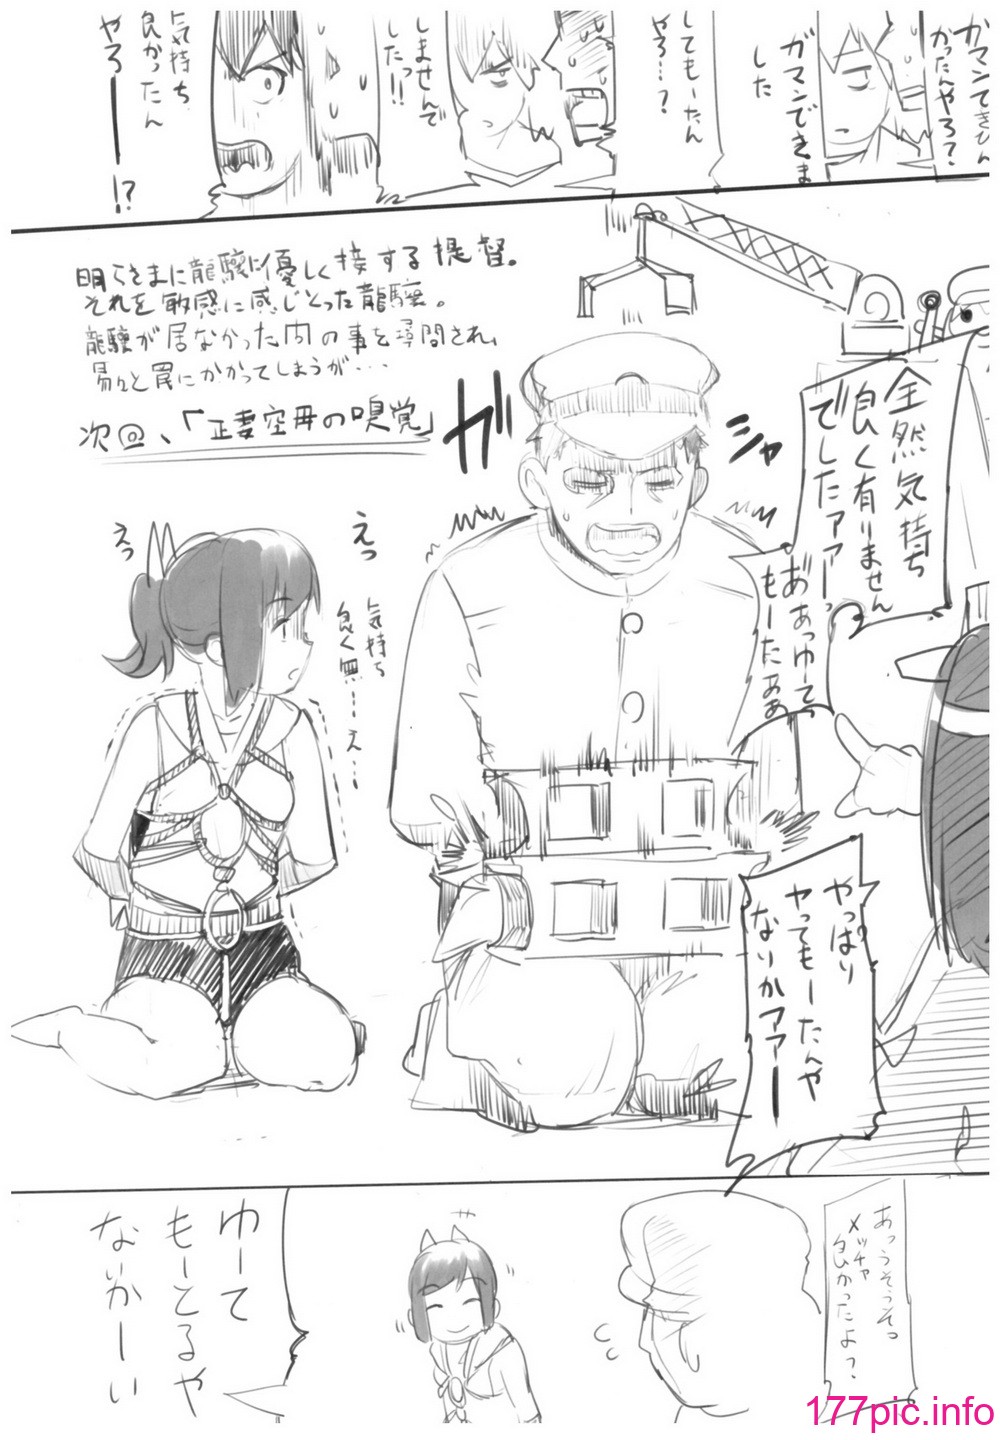 ガマンできひん
かったんやろ?
ガマンできま
した
してもーたん
やろ…?
しませんで
したっ!!
気持ち
良かったん
やろ――!?
明らさまに龍驤に優しく接する提督。
それを敏感に感じとった龍驤。
龍驤が居なかった間の事を尋問され、
易々と罠にかかってしまうが…
次回、「正妻空母の嗅覚」
ガガ
シャ
全然気持ち
良く有りません
でしたァァーっ
あ"あっゆて
もーたぁぁ
えっ
えっ
気持ち
良く無…え…
やっぱり
ヤってもーたんや
ないかァァー
あっうそうそっ
メッチャ
良かったよ?
ゆーて
もーとるや
ないかーい
177pic.info